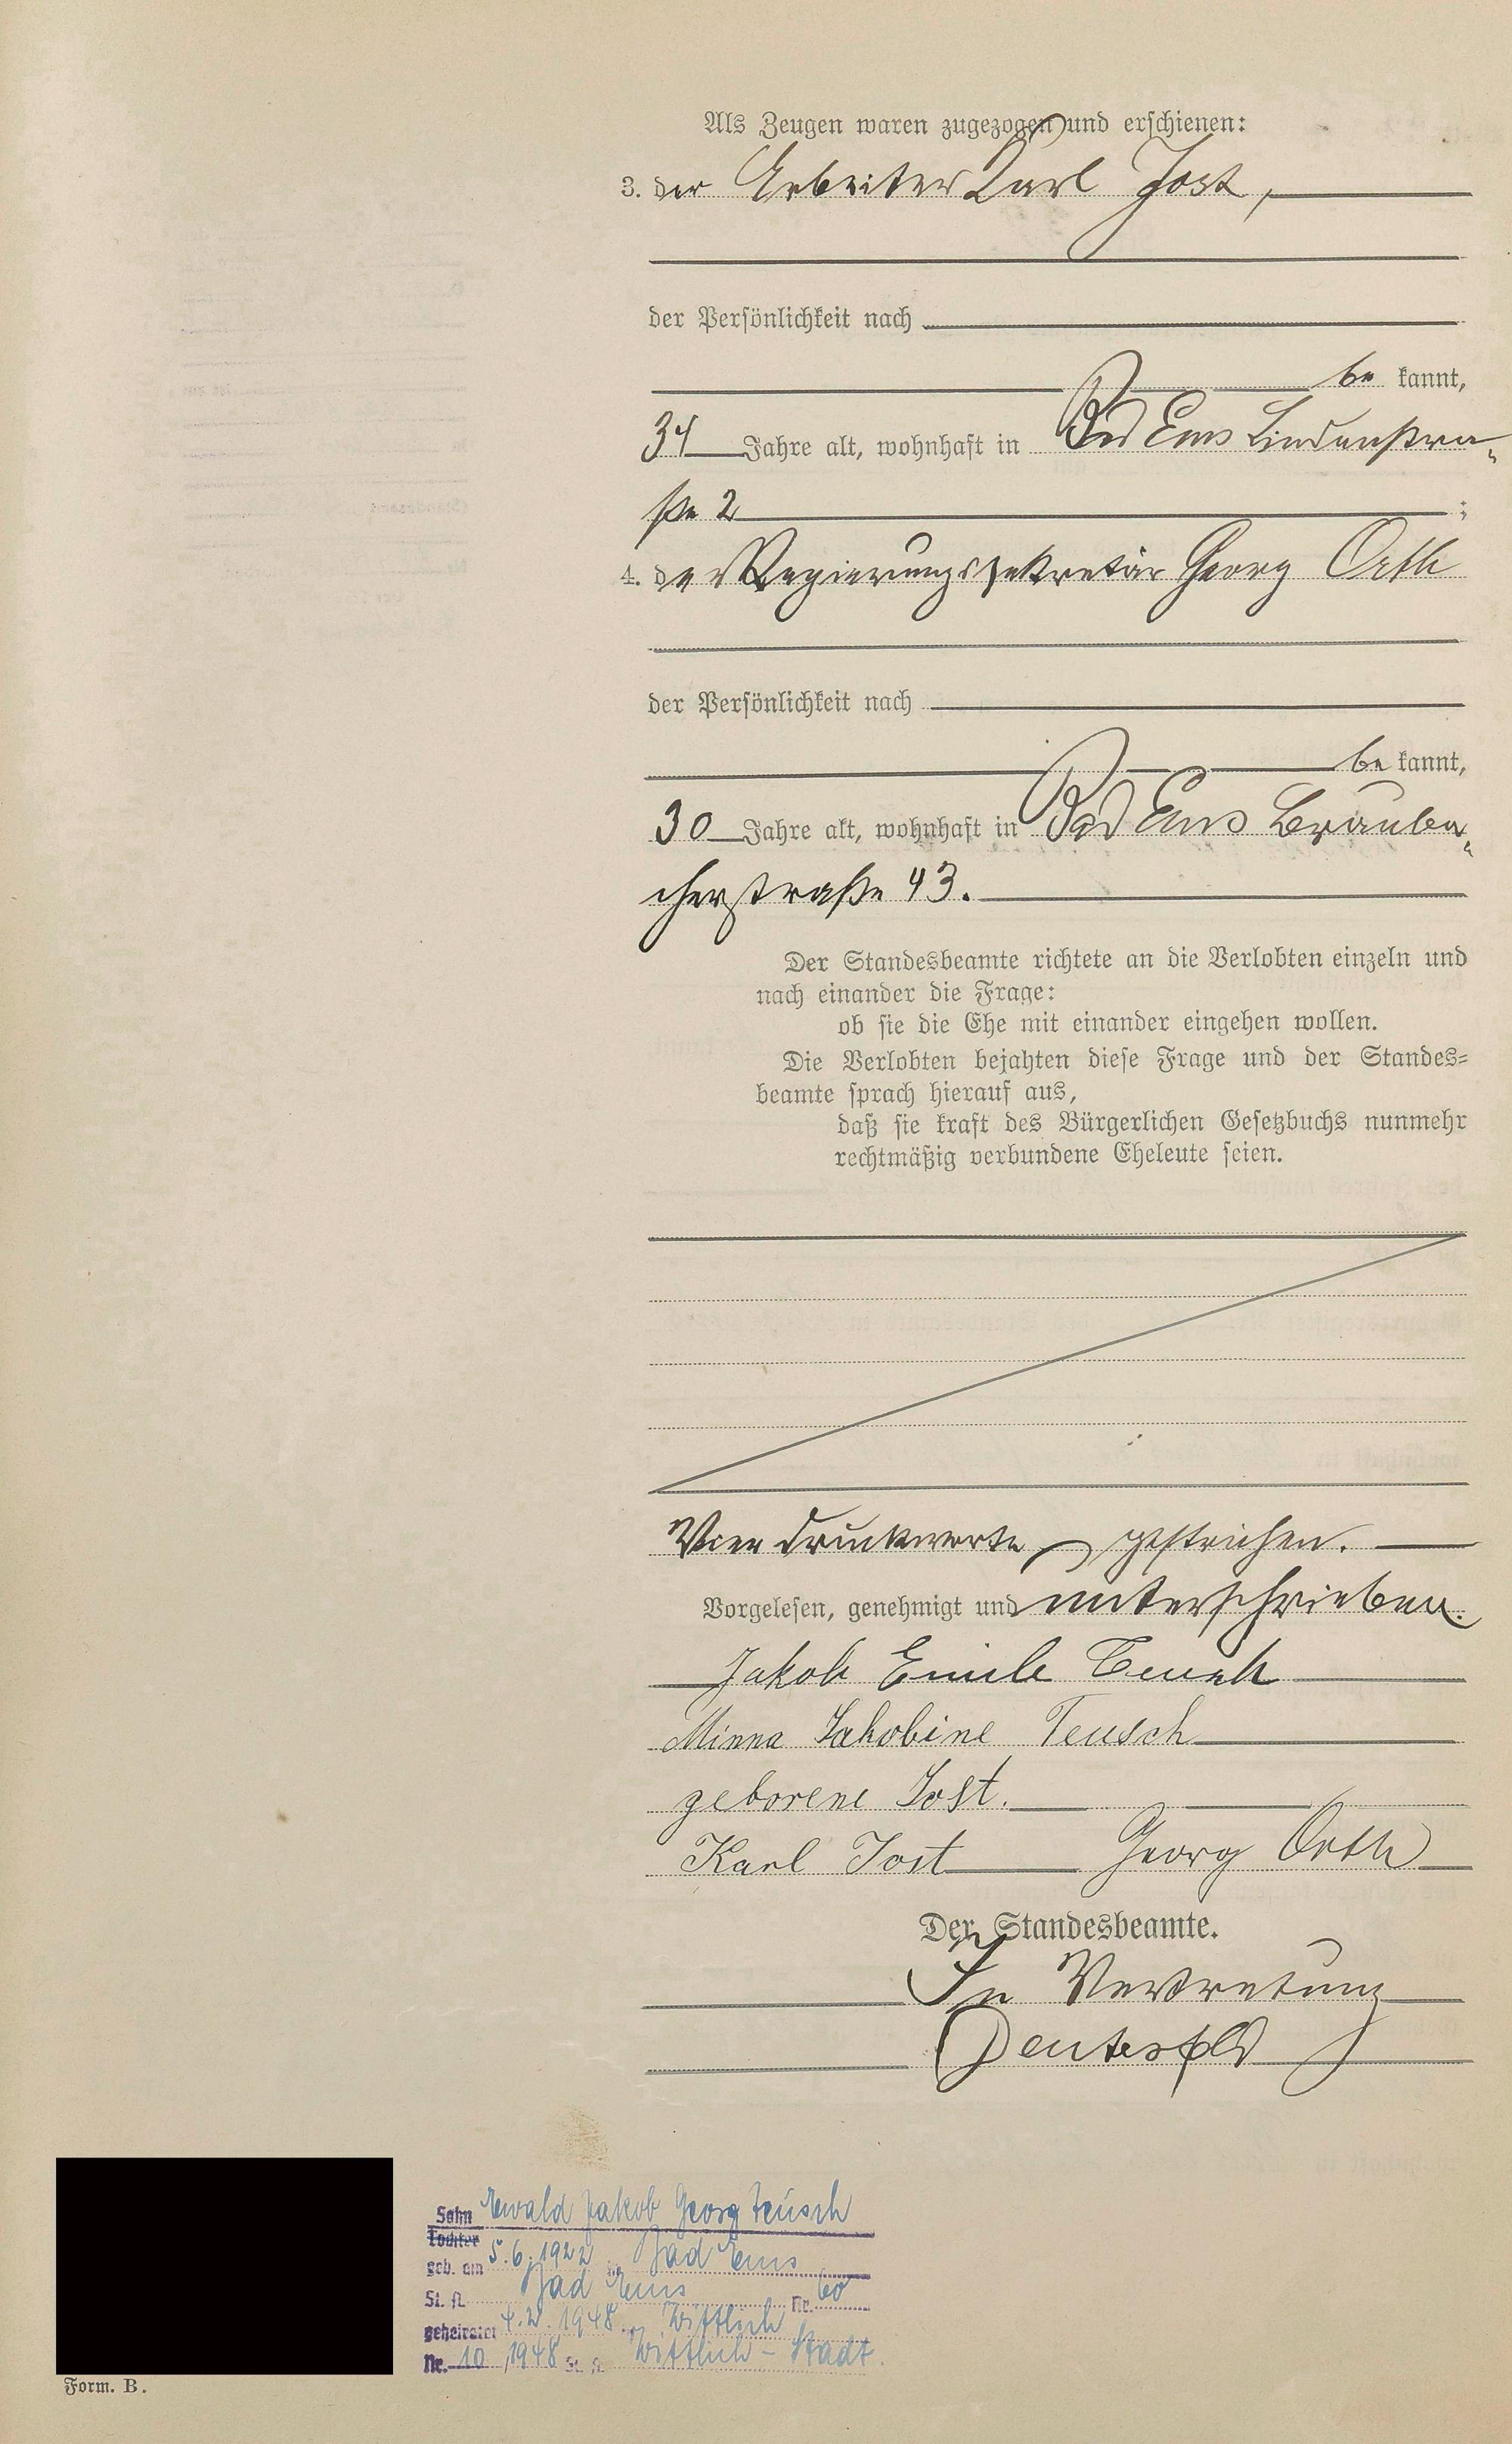 Als Zeugen waren zugezogen und erschienen:
3. der Arbeiter Karl Jost,
der Persönlichkeit nach
be kannt,
34 Jahre alt, wohnhaft in Bad Ems Lindenstra-
ße 2 ;
4. der Regierungssekretär Georg Orth
der Persönlichkeit nach
be kannt,
30 Jahre alt, wohnhaft in Bad Ems Brauba-
cherstraße 43.
Der Standesbeamte richtete an die Verlobten einzeln und
nach einander die Frage:
ob sie die Ehe mit einander eingehen wollen.
Die Verlobten bejahten diese Frage und der Standes=
beamte sprach hierauf aus,
daß sie kraft des Bürgerlichen Gesetzbuchs nunmehr
rechtmäßig verbundene Eheleute seien.
Vier Druckworte gestrichen.
Vorgelesen, genehmigt und unterschrieben.
Jakob Emile Teusch
Minna Jakobine Teusch
geborene Jost.
Karl Jost Georg Orth
Der Standesbeamte.
In Vertretung
Sohn Ewald Jakob Georg Teusch
Tochter
geb. am 5.6.1922 in Bad Ems
St. A. Bad Ems Nr. 60
geheiratet 4.2.1948 in Wittlich
Nr. 10/1948 St. A. Wittlich-Stadt.
Form. B.